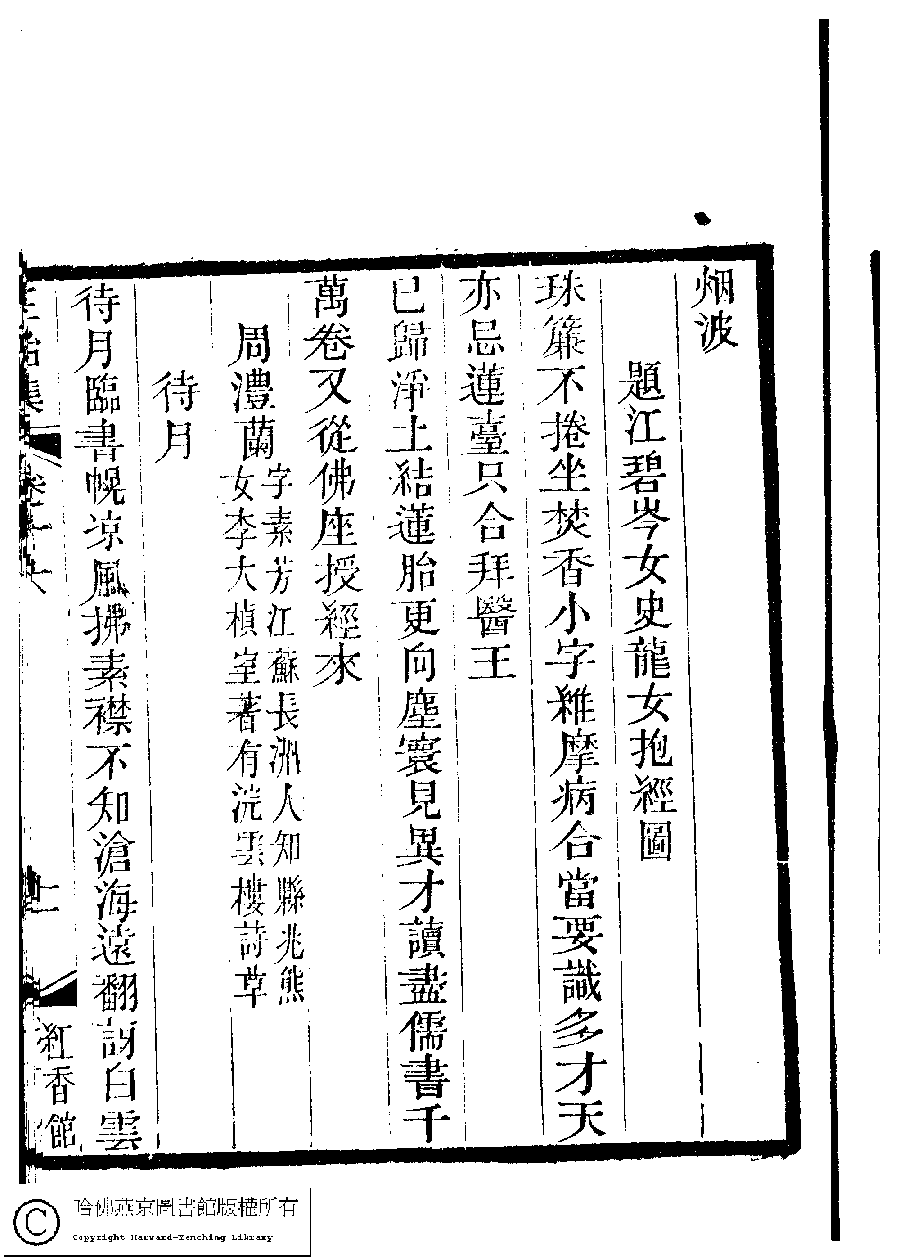 烟波
題江碧岑女史龍女抱經圖
珠簾不捲坐焚香小字維摩病合當要識多才天
亦忌蓮臺只合拜醫王
已歸淨土結蓮胎更向塵寰見異才讀盡儒書千
萬卷又從佛座授經來
周澧蘭
字素芳江蘇長洲人知縣兆熊
女李大楨室著有浣雲樓詩草
待月
待月臨書幌凉風拂素襟不知滄海遠翻訝白雲
集 卷十六
紅香館
哈佛燕京圖書館版權所有
Copyright Harvard-Yenching Library